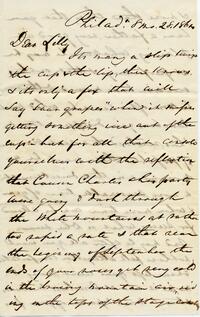 Philad. 8 mo 28. 186
Dear Lily,
For many a slip twixt
the cup & the lip, thee knows
& it's only a fox that will
say "sour grapes" when it misses
getting something nice out of the
cup: but for all that console
yourselves with the reflection
that Cousin Charles also parts
were going & rush through
the White Mountains at rather
too rapid a rate & that near
the beginning of September the
ends of your noses get very cold
in the bracing mountain air, sit
ing on the tops of the stage coach